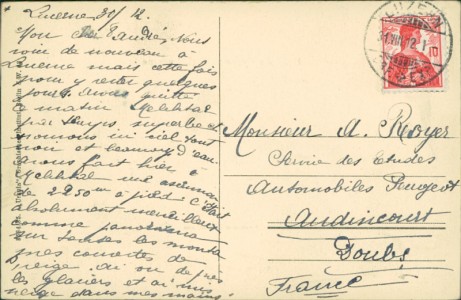 Lucerne 30/ 12.
Mon cher André, Nous
voici de nouveau à
Lucerne mais cette fois
pour y rester quelques
jours. Avons quitté
ce matin Melchtal
par temps superbe et
sommes ici ciel tout
noir et beaucoup d'eau.
Avons fait hier à
Melchtal une ascension
de 2950m à pied: c'était
absolument merveilleux
comme panorama
sur toutes les monta
gnes couvertes de
neige. Ai vu de près
les glaciers et ai mis
neige dans mes mains.
LUZERN
Monsieur A. Royer
Service des Etudes
Automobiles Peugeot
Audincourt
Doubs
France